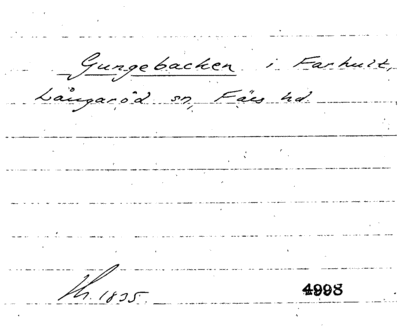 Gungebacken i Farhult,
Långaröd sn, Färs hd.
1835. 4998